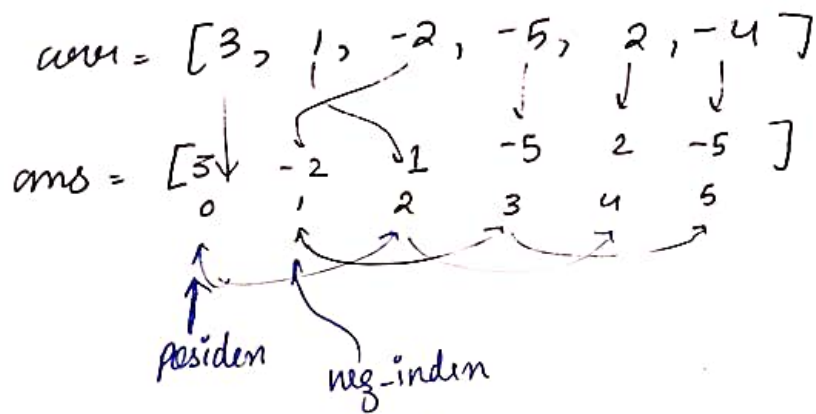 arr = [3, 1, -2, -5, 2, -4]
ans = [3 -2 1 -5 2 -5]
0 1 2 3 4 5
posiden
neg-inden